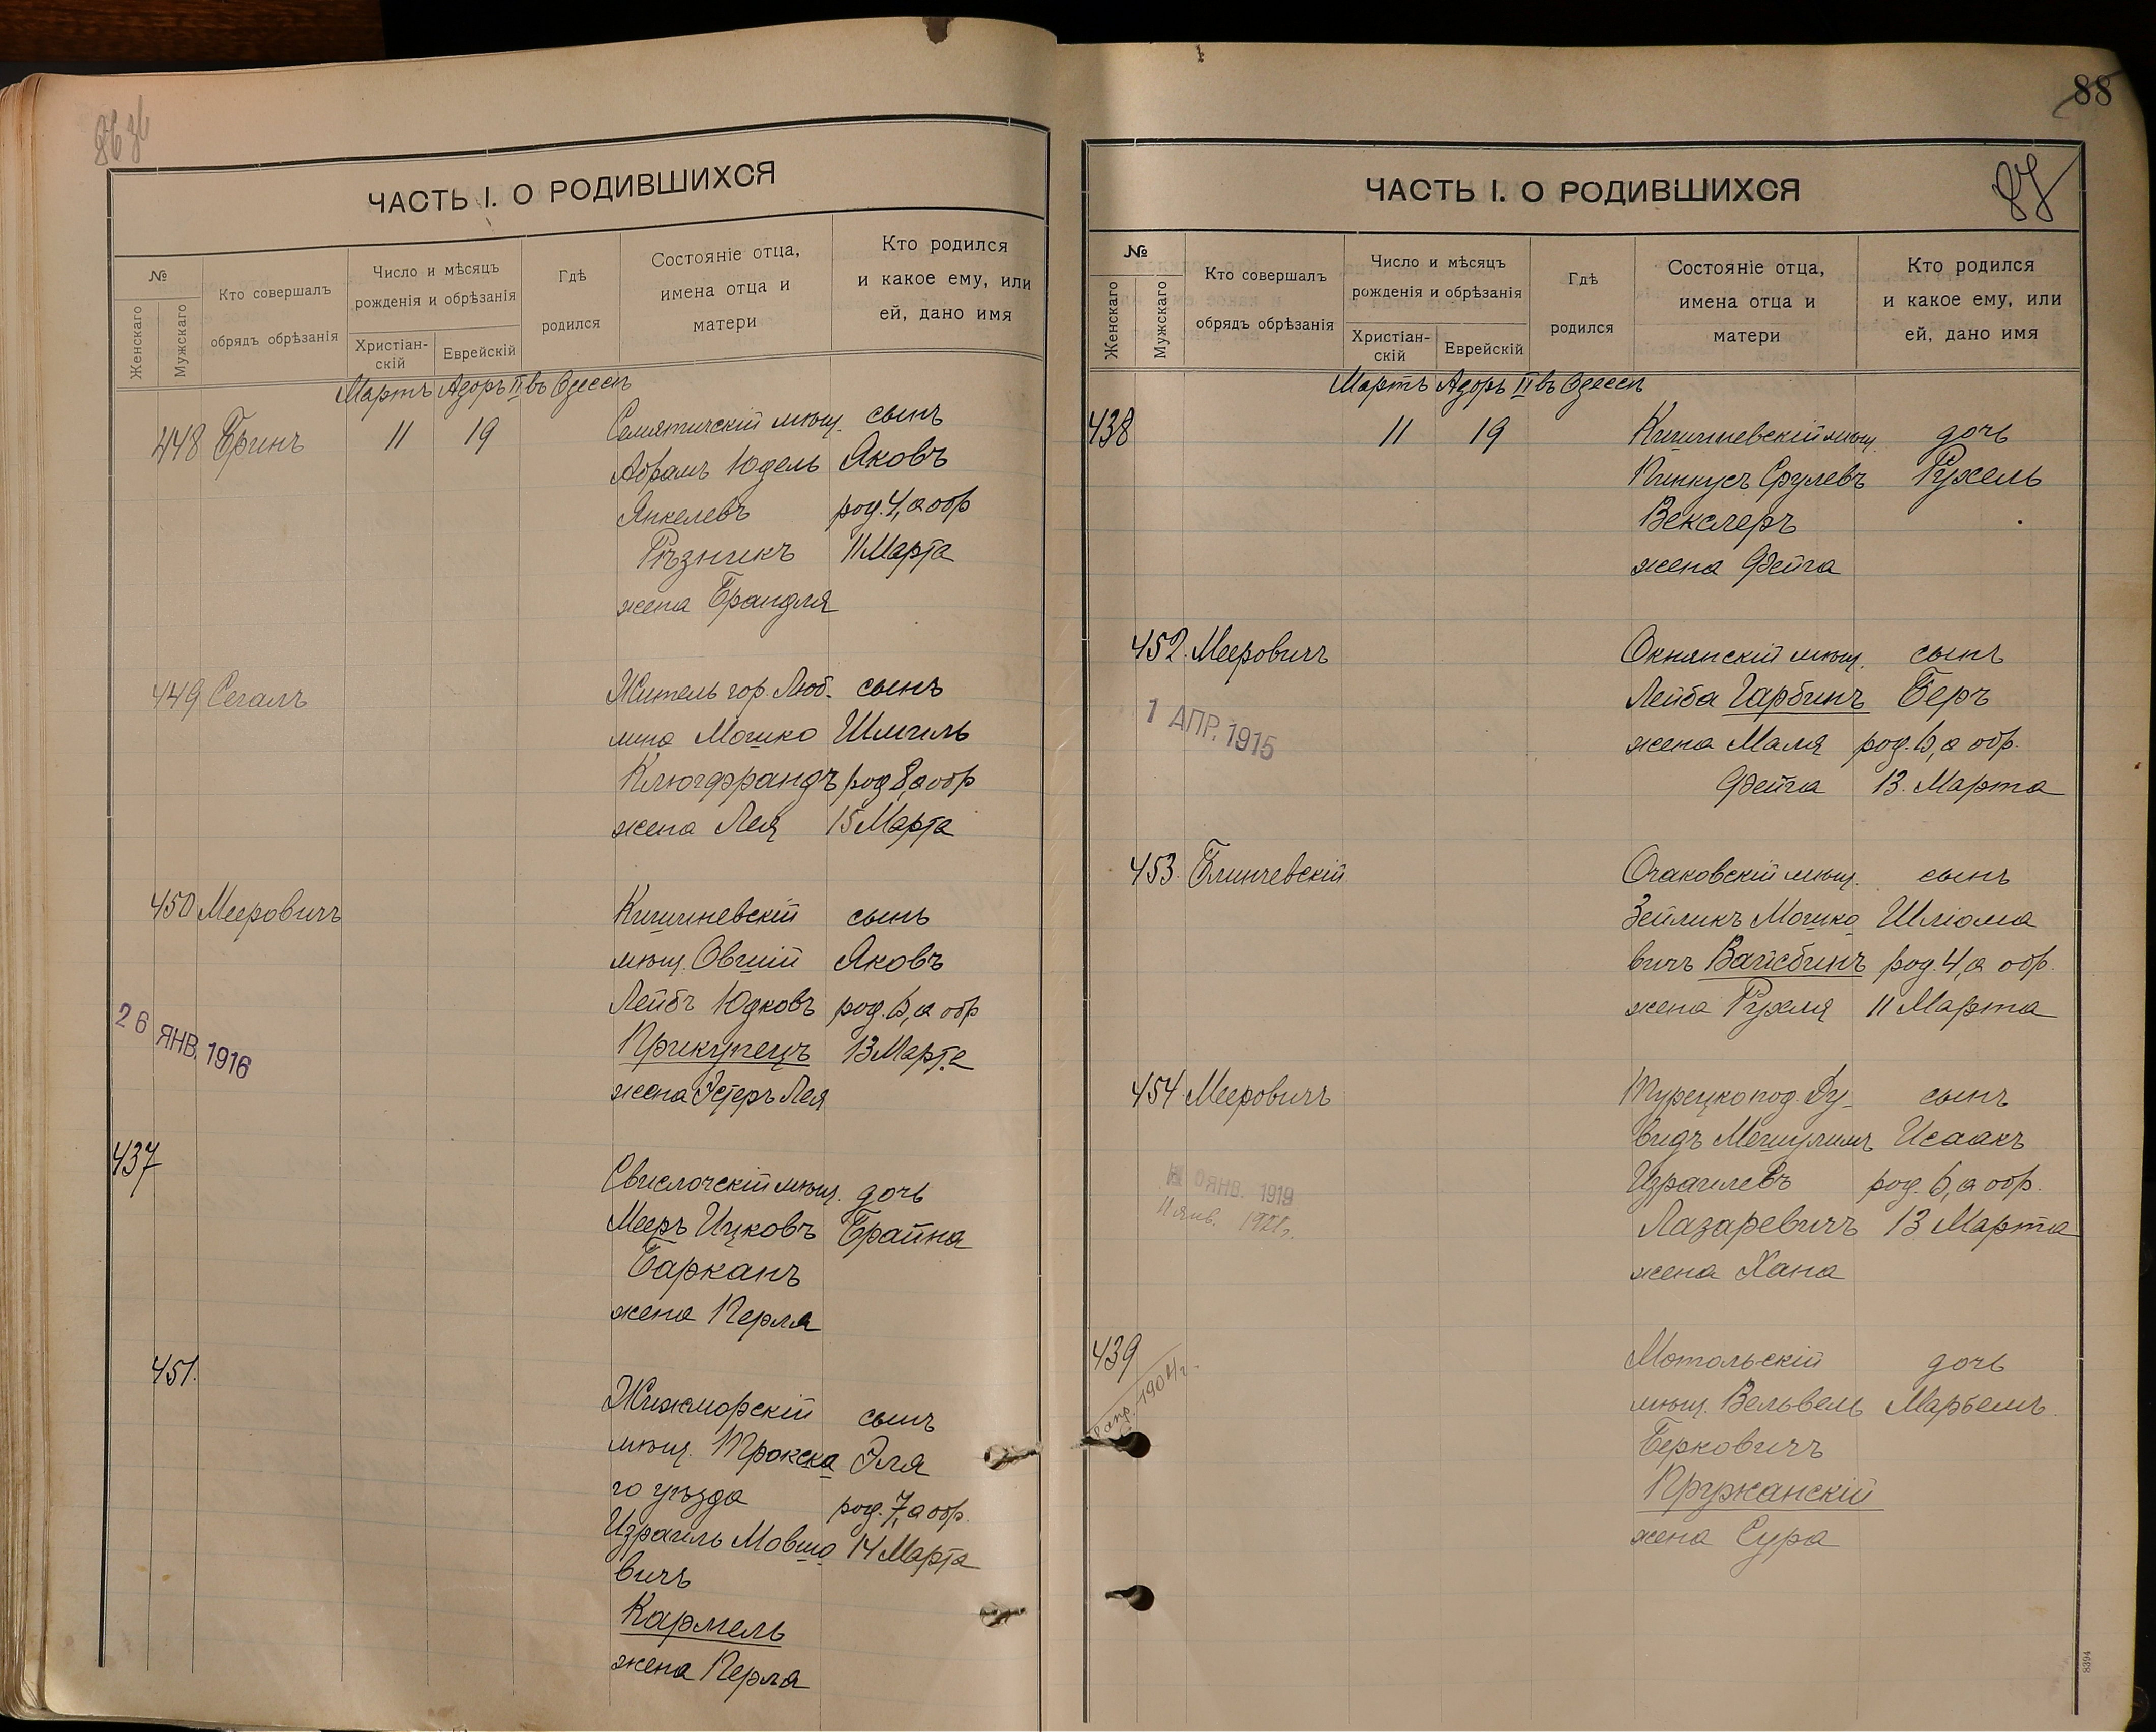 ЧАСТЬ I. О РОДИВШИХСЯ
№
Женскаго
Мужскаго
Кто совершалъ
обрядъ обрѣзанія
Число и мѣсяцъ
рожденія и обрѣзанія
Христіан-
скій
Еврейскій
Гдѣ
родился
Состояніе отца,
имена отца и
матери
Кто родился
и какое ему, или
ей, дано имя
Мартъ Адоръ II въ Одессѣ
448 Бринъ 11 19 Семятичскій мѣщ. сынъ
Абрамъ Юдель Яковъ
Янкелевъ род. 4, а обр
Рѣзникъ 11 Марта
жена Брандля
449 Сегалъ Житель гор. Люб- сынъ
лина Мошко Шмиль
Клюгфрандъ род 8, а обр
жена Лея 15 Марта
450 Мееровичъ Кишиневскій сынъ
мѣщ. Овшій Яковъ
Лейбъ Юдковъ род. 6, а обр
26 ЯНВ. 1916
Прикупецъ 13 Марта
жена Эстеръ Лея
437 Свислочскій мѣщ. дочь
Мееръ Ицковъ Брайна
Барканъ
жена Перля
451. Жижморскій сынъ
мѣщ. Трокска Эля
го уѣзда род. 7, а обр.
Израиль Мовшо 14 Марта
вичъ
Кармель
жена Перля
88
87
ЧАСТЬ I. О РОДИВШИХСЯ
№
Женскаго
Мужскаго
Кто совершалъ
обрядъ обрѣзанія
Число и мѣсяцъ
рожденія и обрѣзанія
Христіан-
скій
Еврейскій
Гдѣ
родился
Состояніе отца,
имена отца и
матери
Кто родился
и какое ему, или
ей, дано имя
Мартъ Адоръ II въ Одессѣ
438 11 19 Кишиневскій мѣщ. дочь
Пинкусъ Срулевъ Рухель
Векслеръ
жена Фейга
452. Мееровичъ Окнянскій мѣщ. сынъ
Лейба Гарбинъ Беръ
1 АПР. 1915
жена Маля род. 6, а обр.
Фейга 13. Марта
453. Блинчевскій Очаковскій мѣщ. сынъ
Зейликъ Мошко Шліома
вичъ Вайсбинъ род. 4, а обр.
жена Рухля 11 Марта
454. Мееровичъ Турецко под. Ду- сынъ
видъ Мешулимъ Исаакъ
ЯНВ. 1919
Израилевъ род. 6, а обр.
11 янв.
Лазаревичъ 13 Марта
жена Хана
439 Мотольскій дочь
мѣщ. Вельвель Марьемъ
апр. 1904 г.
Берковичъ
Пружанскій
жена Сура
8394